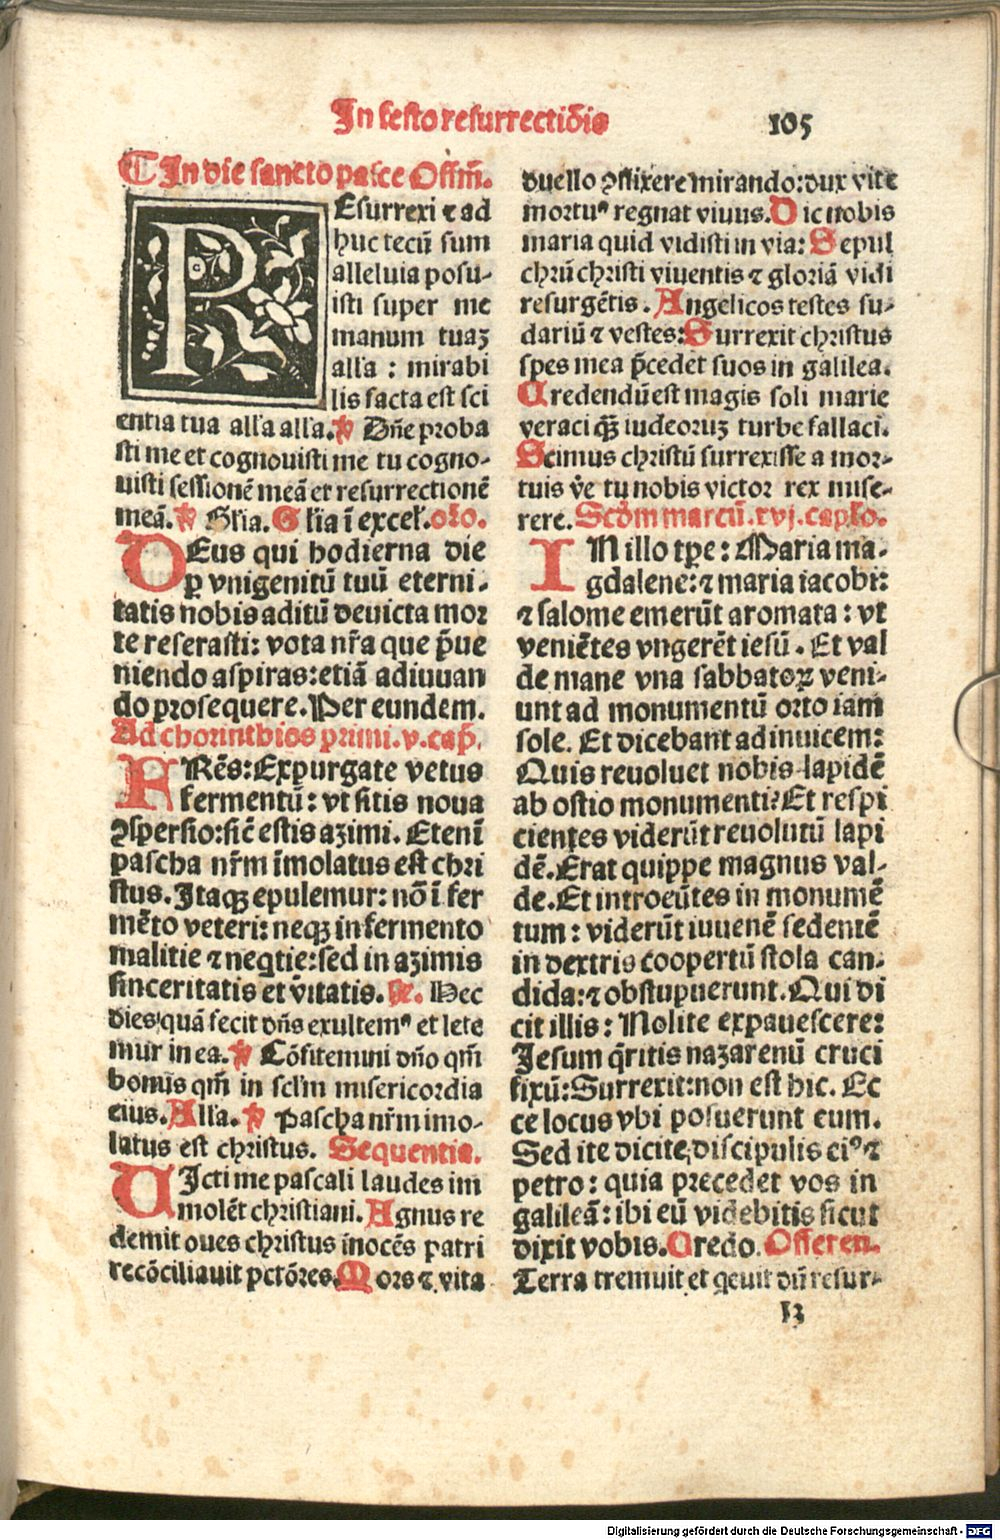 In festo resurrectiōis
105
¶ In die sancto pasce Offm̄.
REsurrexi ⁊ ad
huc tecū sum
alleluia posu-
isti super me
manum tuaꝫ
alla : mirabi
lis facta est sci
entia tua alla alla. ꝟ Dn̄e proba
sti me et cognouisti me tu cogno-
uisti sessionē meā et resurrectionē
meā. ꝟ Glia. Glia ī excel. oro.
DEus qui hodierna die
ꝑ vnigenitū tuū eterni-
tatis nobis aditū deuicta mor
te reserasti: vota nr̄a que p̄ue
niendo aspiras: etiā adiuuan
do prosequere. Per eundem.
Ad chorinthios primi. v. cap̄.
FRēs: Expurgate vetus
fermentū: vt sitis noua
ꝯspersio: sic̄ estis azimi. Etenī
pascha nr̄m īmolatus est chri
stus. Itaqꝫ epulemur: nō ī fer
mēto veteri: neqꝫ in fermento
malitie ⁊ neqtie: sed in azimis
sinceritatis et v̄itatis. Hec
dies quā fecit dn̄s exultemꝰ et lete
mur in ea. ꝟ Cōfitemini dn̄o qm̄
bonus qm̄ in sclm misericordia
eius. Alla. ꝟ Pascha nr̄m imo-
latus est christus. Sequentia.
VIctime pascali laudes im
molēt christiani. Agnus re
demit oues christus inocēs patri
recōciliauit pctōres. Mors ⁊ vita
duello ꝯflixere mirando: dux vite
mortuꝰ regnat viuus. Dic nobis
maria quid vidisti in via: Sepul
chrū christi viuentis ⁊ gloriā vidi
resurgētis. Angelicos testes su-
dariū ⁊ vestes: Surrexit christus
spes mea p̄cedet suos in galilea.
Credendū est magis soli marie
veraci qꝫ̄ iudeoruꝫ turbe fallaci.
Scimus christū surrexisse a mor-
tuis v̄e tu nobis victor rex mise-
rere. Scd̄m marcū. xvj. caplo.
IN illo tꝑe: Maria ma-
gdalene: ⁊ maria iacobi:
⁊ salome emerūt aromata: vt
veniētes vngerēt iesū. Et val
de mane vna sabbatoꝝ veni-
unt ad monumentū orto iam
sole. Et dicebant adinuicem:
Quis reuoluet nobis lapidē
ab ostio monumenti? Et respi
cientes viderūt reuolutū lapi
dē. Erat quippe magnus val-
de. Et introeūtes in monumē
tum: viderūt iuuenē sedentē
in dextris coopertū stola can-
dida: ⁊ obstupuerunt. Qui di
cit illis: Nolite expauescere:
Jesum q̄ritis nazarenū cruci
fixū: Surrexit: non est hic. Ec
ce locus vbi posuerunt eum.
Sed ite dicite discipulis eiꝰ ⁊
petro: quia precedet vos in
galileā: ibi eū videbitis sicut
dixit vobis. Credo. Offeren.
Terra tremuit et qeuit dū resur-
Digitalisierung gefördert durch die Deutsche Forschungsgemeinschaft - DFG